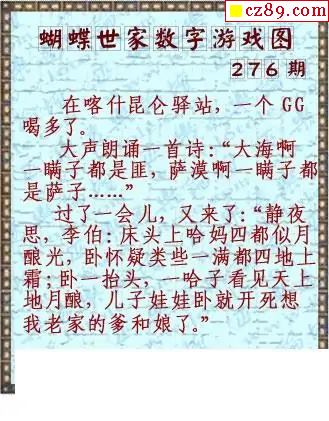 cz89.com
蝴蝶世家数字游戏图
276期
在喀什昆仑驿站，一个GG
喝多了。
大声朗诵一首诗：“大海啊
一瞒子都是匪，萨漠啊一瞒子都
是萨子……”
过了一会儿，又来了：“静夜
思，李伯：床头上哈妈四都似月
酿光，卧怀疑类些一满都四地上
霜；卧一抬头，一哈子看见天上
地月酿，儿子娃娃卧就开死想
我老家的爹和娘了。”